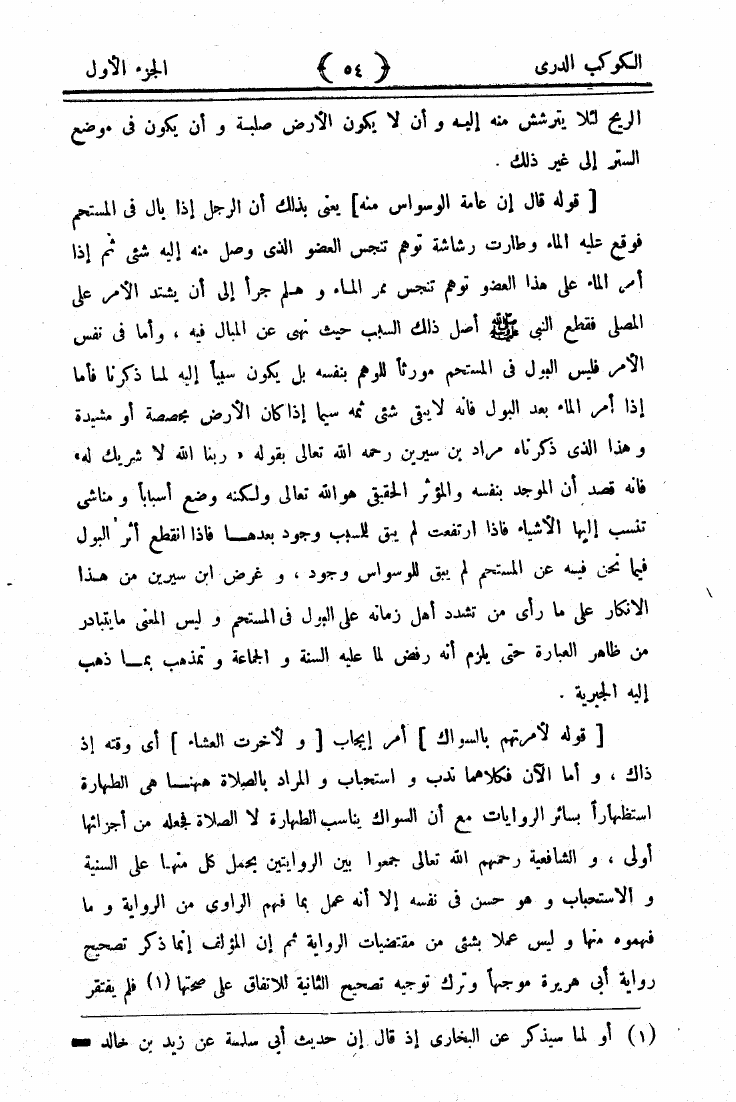 الكوكب الدرى ﴿ ٥٤ ﴾ الجزء الأول
الريح لئلا يترشش منه إليه و أن لا يكون الأرض صلبة و أن يكون فى موضع
الستر إلى غير ذلك .
[ قوله قال إن عامة الوسواس منه] يعنى بذلك أن الرجل إذا بال فى المستحم
فوقع عليه الماء وطارت رشاشة توهم تنجس العضو الذى وصل منه إليه شئى ثم إذا
أمر الماء على هذا العضو توهم تنجس ممر الماء و هلم جرأ إلى أن يشتد الأمر على
المصلى فقطع النبى ﷺ أصل ذلك السبب حيث نهى عن المبال فيه ، وأما فى نفس
الأمر فليس البول فى المستحم مورثاً للوهم بنفسه بل يكون سبباً إليه لما ذكرنا فأما
إذا أمر الماء بعد البول فانه لايبقى شئى ثمه سيما إذاكان الأرض مجصصة أو مشيدة
و هذا الذى ذكرناه مراد بن سيرين رحمه الله تعالى بقوله « ربنا الله لا شريك له»
فانه قصد أن الموجد بنفسه والمؤثر الحقيقى هوالله تعالى ولكنه وضع أسباباً و مناشى
تنسب إليها الأشياء فاذا ارتفعت لم يبق للسبب وجود بعدهـا فاذا انقطع أثر البول
فيما نحن فيه عن المستحم لم يبق للوسواس وجود ، و غرض ابن سيرين من هـذا
الانكار على ما رأى من تشدد أهل زمانه على البول فى المستحم و ليس المعنى مايتبادر
من ظاهر العبارة حتى يلزم أنه رفض لما عليه السنة و الجماعة و تمذهب بمـا ذهب
إليه الجبرية .
[ قوله لأمرتهم بالسواك ] أمر إيجاب [ و لأخرت العشاء ] أى وقته إذ
ذاك ، و أما الآن فكلاهما ندب و استحباب و المراد بالصلاة ههنـا هى الطهارة
استظهاراً بسائر الروايات مع أن السواك يناسب الطهارة لا الصلاة فجعله من أجزائها
أولى ، و الشافعية رحمهم الله تعالى جمعوا بين الروايتين بحمل كل منهـا على السنية
و الاستحباب و هو حسن فى نفسه إلا أنه عمل بما فهم الراوى من الرواية و ما
فهموه منها و ليس عملا بشئى من مقتضيات الرواية ثم إن المؤلف إنما ذكر تصحيح
رواية أبى هريرة موجهاً وترك توجيه تصحيح الثانية للاتفاق على صحتها (١) فلم يفتقر
(١) أو لما سيذكر عن البخارى إذ قال إن حديث أبى سلمة عن زيد بن خالد